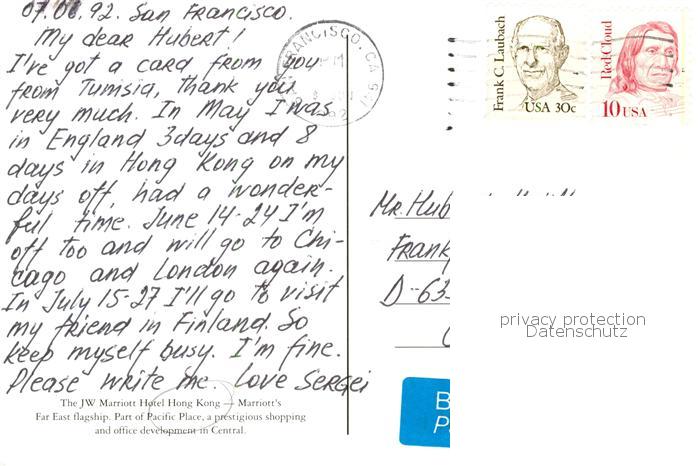 07.06.92. San Francisco.
My dear Hubert!
I've got a card from you
from Tumsia, thank you
very much. In May I was
in England 3days and 8
days in Hong Kong on my
days off, had a wonder-
ful time. June 14-24 I'm
off too and will go to Chi-
cago and London again.
In July 15-27 I'll go to visit
my friend in Finland. So
keep myself busy. I'm fine.
Please write me. Love Sergei
The JW Marriott Hotel Hong Kong — Marriott's
Far East flagship. Part of Pacific Place, a prestigious shopping
and office development in Central.
FRANCISCO, CA
Frank C. Laubach
USA 30c
Red Cloud
10 USA
Mr. Hub
Frank
D-63
privacy protection
Datenschutz